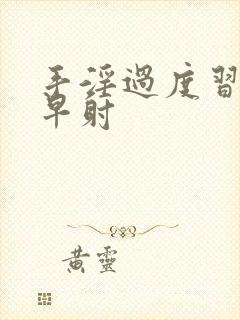 手淫過度習
早射
黃靈